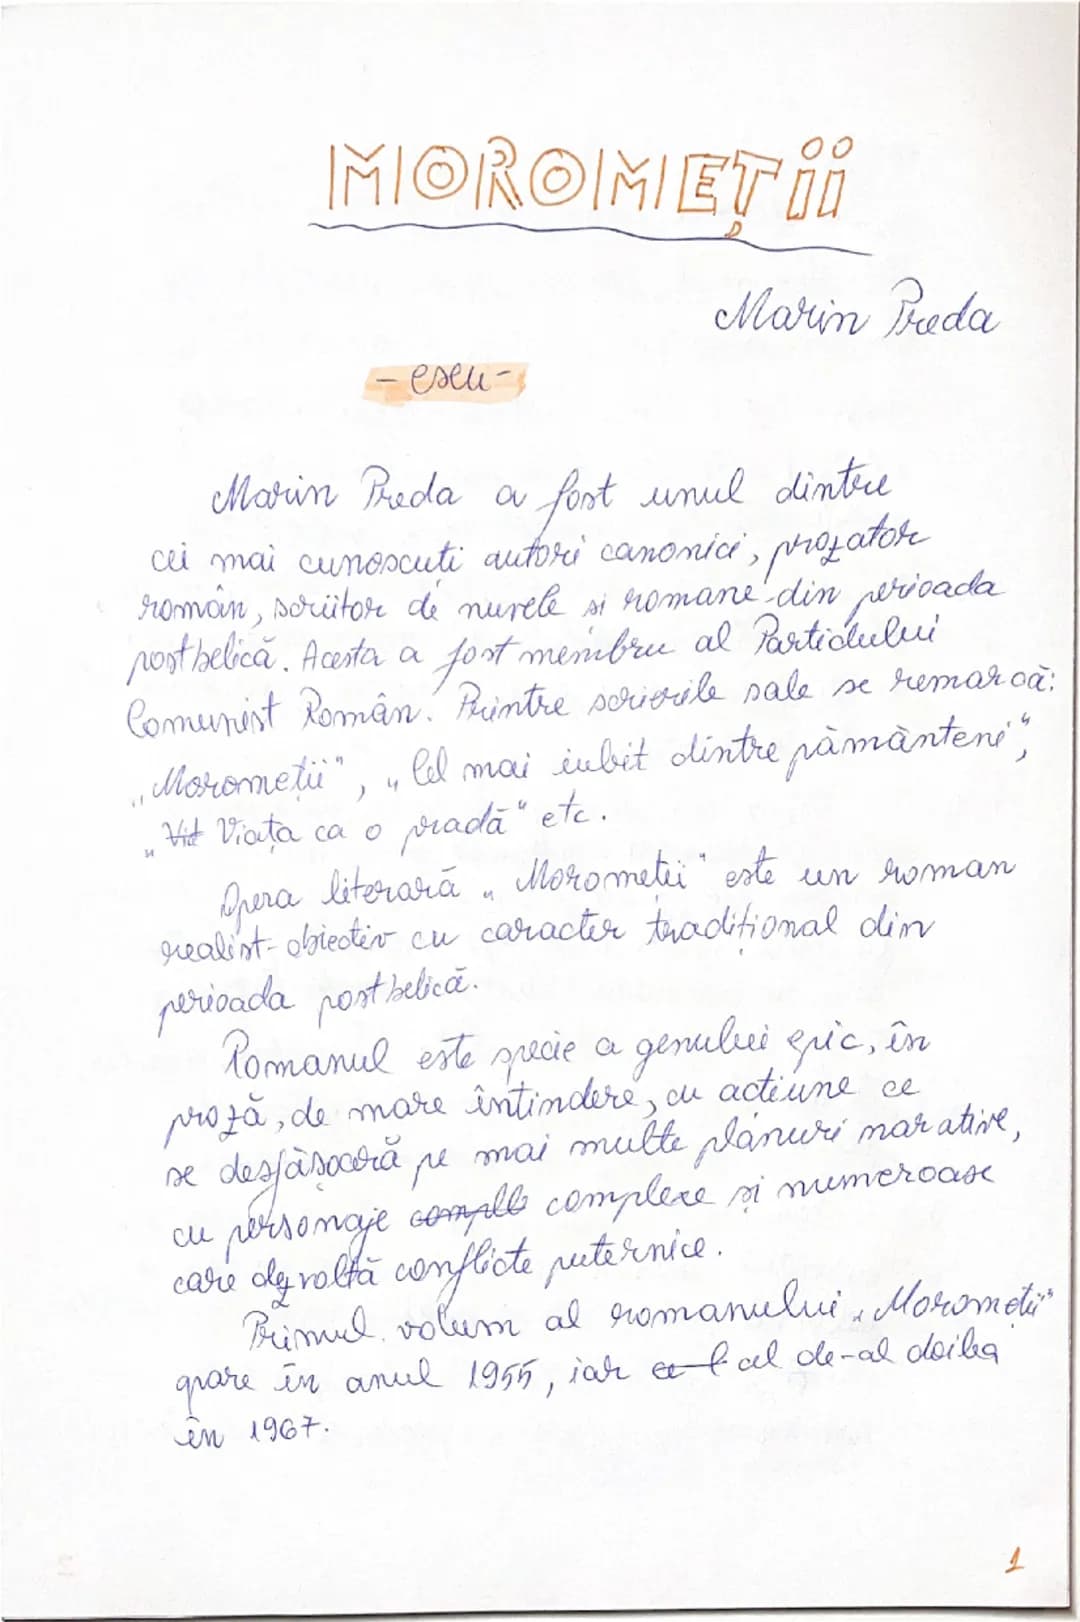 MOROMEȚII
Marin Preda
- eseu -
Marin Preda a fost unul dintre
cei mai cunoscuti autori canonici, prozator
român, scriitor de nuvele si romane din perioada
postbelică. Acesta a fost membru al Partidului
Comunist Român. Printre scrierile sale se remarcă:
„Morometii", „Cel mai iubit dintre pământeni",
„Vit Viata ca o pradă" etc.
Opera literară „Morometii" este un roman
realist-obiectiv cu caracter tradițional din
perioada postbelică.
Romanul este specie a genului epic, în
proză, de mare întindere, cu actiune ce
se desfășoară pe mai multe planuri narative,
cu personaje complex complexe si numeroase
care dezvoltă conflicte puternice.
Primul volum al romanului „Morometii"
apare în anul 1955, iar al de-al doilea
în 1967.
1